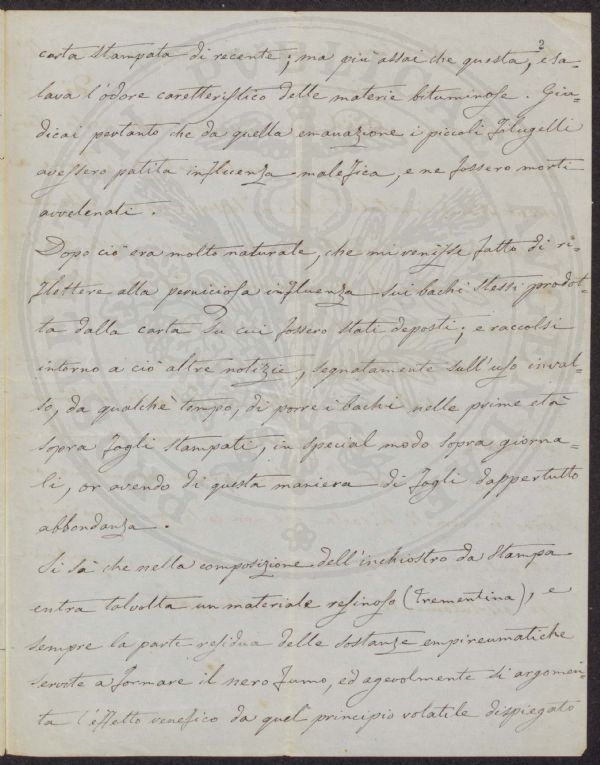 2
carta stampata di recente; ma più assai che questa, esa-
lava l'odore caretteristico delle materie bituminose. Giu-
dicai pertanto che da quella emanazione i piccoli Filugelli
avessero patita influenza malefica, e ne fossero morti
avvelenati.
Dopo ciò era molto naturale, che mi venisse fatto di ri-
flettere alla perniciosa influenza sui bachi stessi prodot-
ta dalla carta su cui fossero stati deposti; e raccolsi
intorno a ciò altre notizie, segnatamente sull'uso inval-
so, da qualche tempo, di porre i bachi nelle prime età
sopra fogli stampati, in special modo sopra giorna-
li, or avendo di questa maniera di fogli dappertutto
abbondanza.
Si sà che nella composizione dell'inchiostro da stampa
entra talvolta un materiale resinoso (trementina), e
sempre la parte residua delle sostanze empireumatiche
servite a formare il nero fumo, ed agevolmente si argomen-
ta l'effetto venefico da quel principio volatile dispiegato